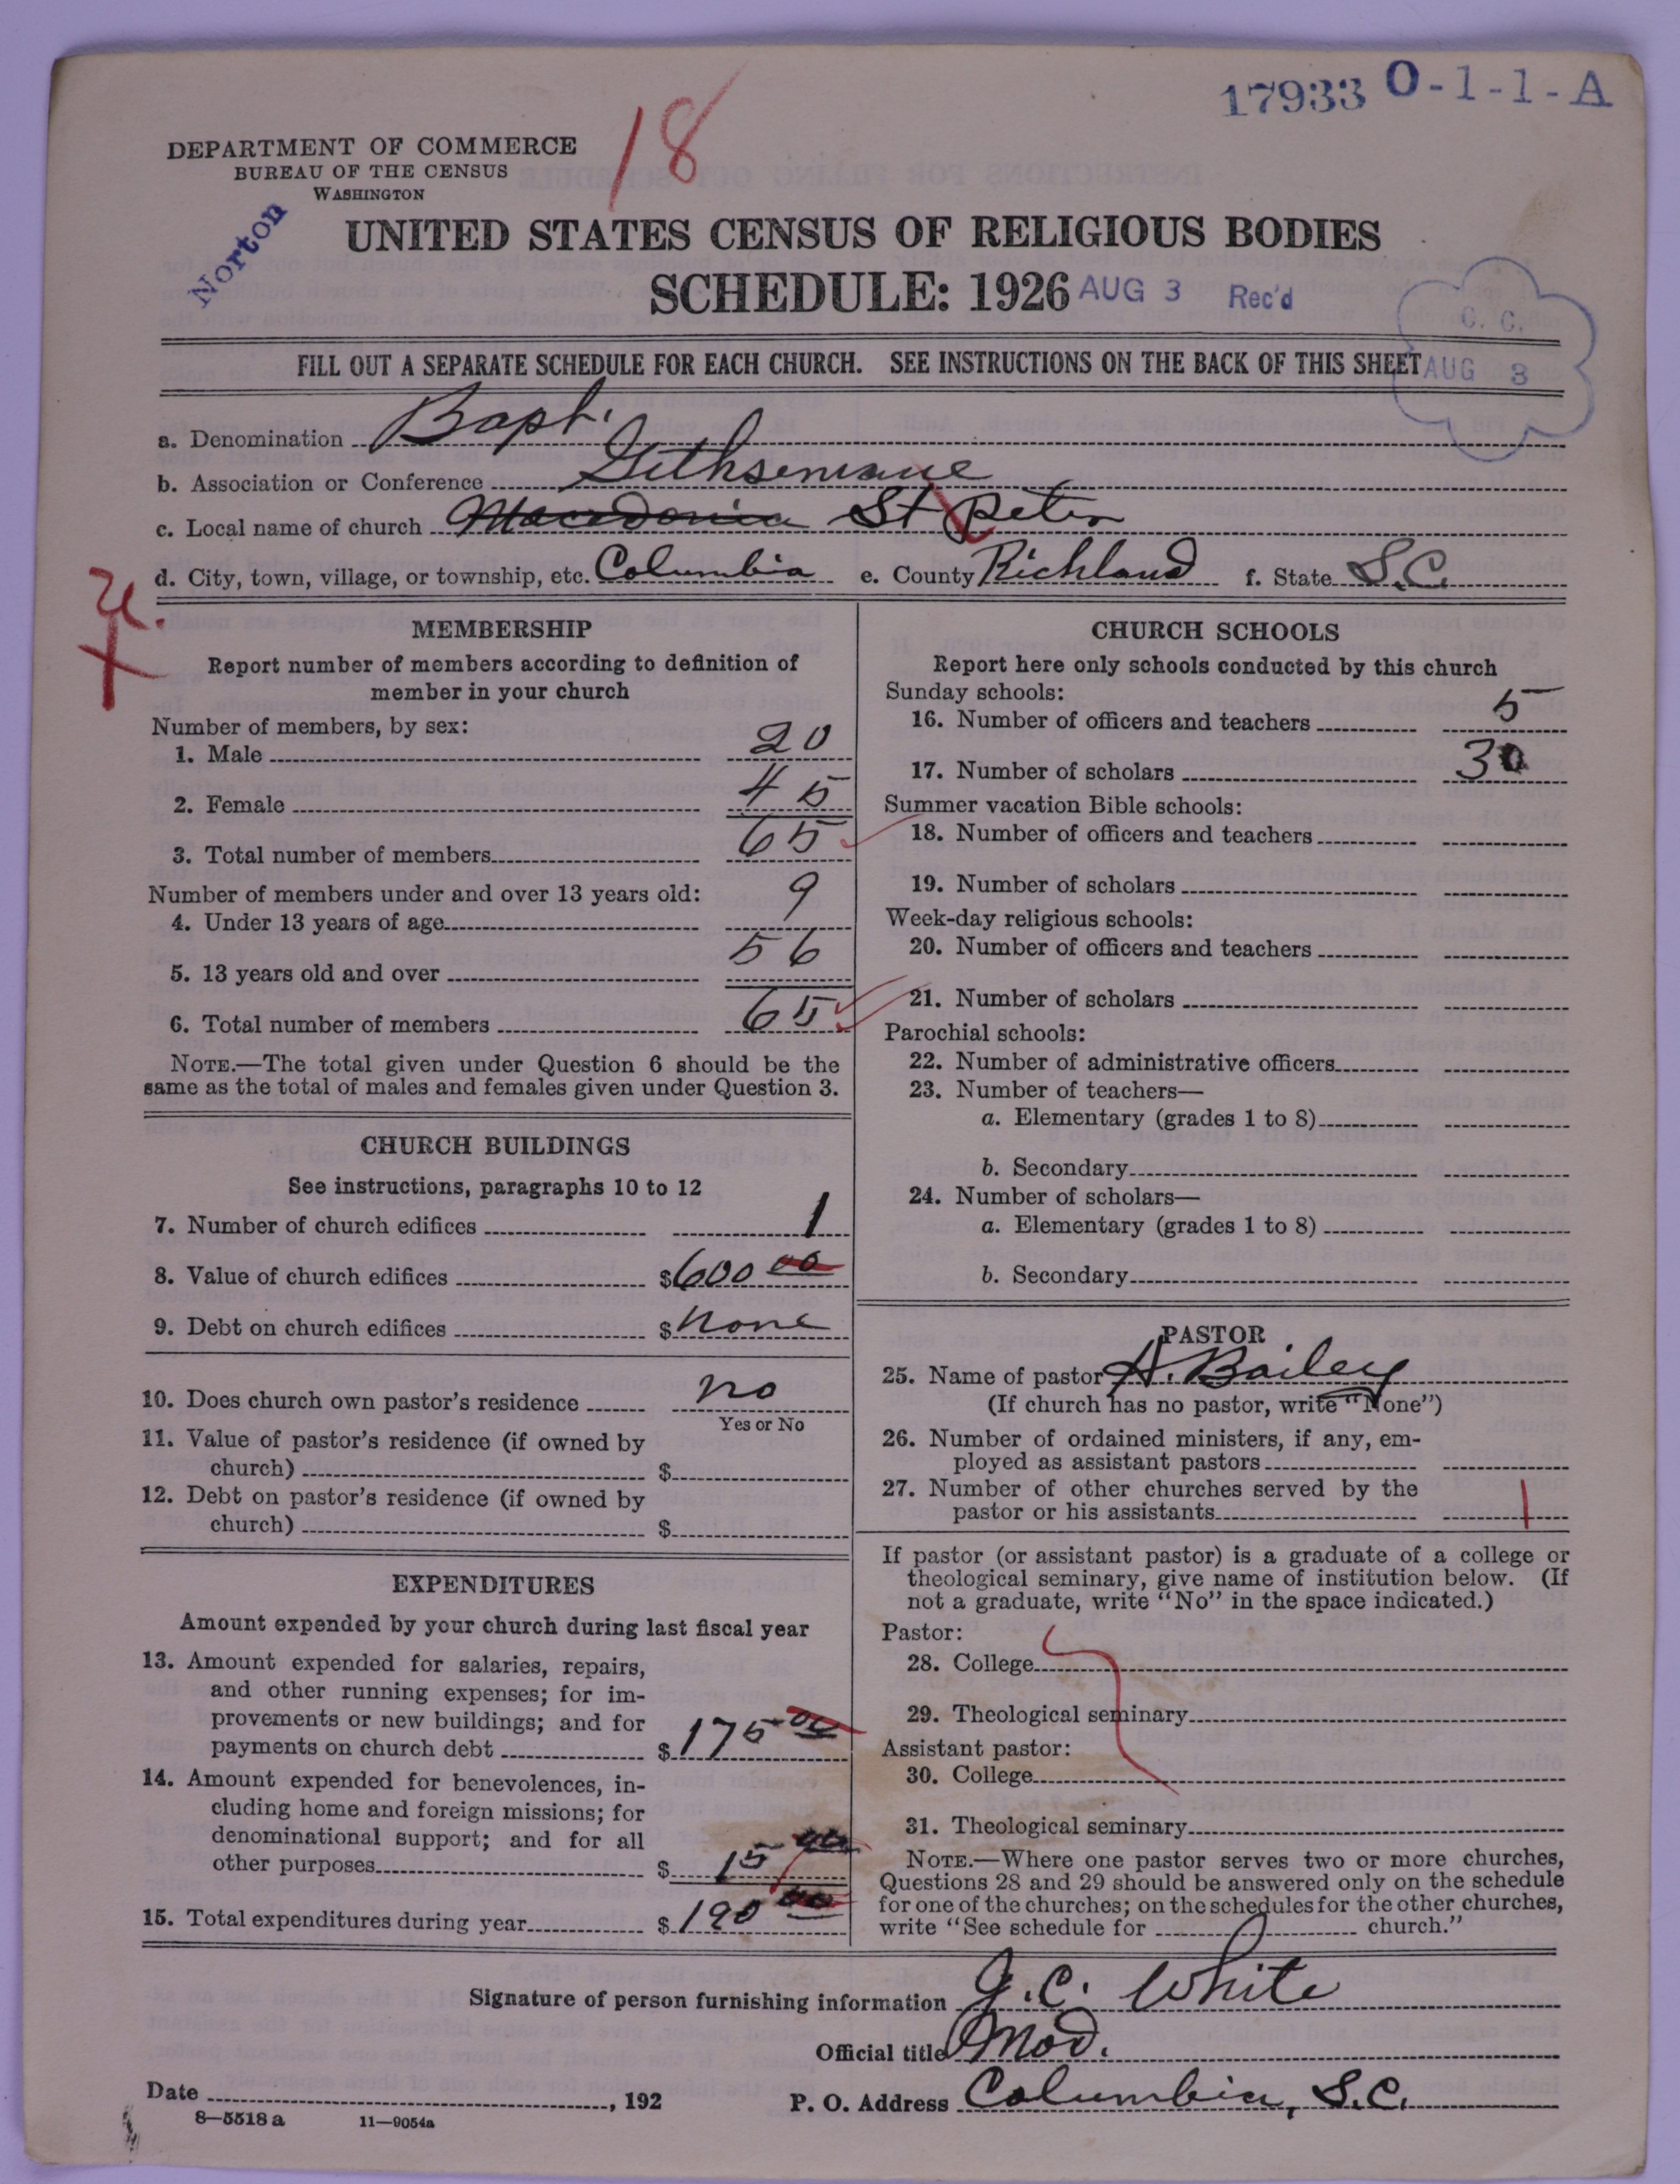 17933 O-1-1-A
18
DEPARTMENT OF COMMERCE
BUREAU OF THE CENSUS
WASHINGTON
Norton
UNITED STATES CENSUS OF RELIGIOUS BODIES
SCHEDULE: 1926
AUG 3 Rec'd
C. C.
AUG 3
FILL OUT A SEPARATE SCHEDULE FOR EACH CHURCH. SEE INSTRUCTIONS ON THE BACK OF THIS SHEET
a. Denomination Bapt.
b. Association or Conference Gethsemane
c. Local name of church Macedonia St Peter
d. City, town, village, or township, etc. Columbia e. County Richland f. State S.C.
MEMBERSHIP
Report number of members according to definition of
member in your church
Number of members, by sex:
1. Male 20
2. Female 45
3. Total number of members 65
Number of members under and over 13 years old:
4. Under 13 years of age 9
5. 13 years old and over 56
6. Total number of members 65
NOTE.—The total given under Question 6 should be the
same as the total of males and females given under Question 3.
CHURCH BUILDINGS
See instructions, paragraphs 10 to 12
7. Number of church edifices 1
8. Value of church edifices $600 00
9. Debt on church edifices $ None
10. Does church own pastor's residence no
Yes or No
11. Value of pastor's residence (if owned by
church) $
12. Debt on pastor's residence (if owned by
church) $
EXPENDITURES
Amount expended by your church during last fiscal year
13. Amount expended for salaries, repairs,
and other running expenses; for im-
provements or new buildings; and for
payments on church debt $175 00
14. Amount expended for benevolences, in-
cluding home and foreign missions; for
denominational support; and for all
other purposes $ 15 00
15. Total expenditures during year $190 00
CHURCH SCHOOLS
Report here only schools conducted by this church
Sunday schools:
16. Number of officers and teachers 5
17. Number of scholars 30
Summer vacation Bible schools:
18. Number of officers and teachers
19. Number of scholars
Week-day religious schools:
20. Number of officers and teachers
21. Number of scholars
Parochial schools:
22. Number of administrative officers
23. Number of teachers—
a. Elementary (grades 1 to 8)
b. Secondary
24. Number of scholars—
a. Elementary (grades 1 to 8)
b. Secondary
PASTOR
25. Name of pastor A. Bailey
(If church has no pastor, write "None")
26. Number of ordained ministers, if any, em-
ployed as assistant pastors
27. Number of other churches served by the
pastor or his assistants 1
If pastor (or assistant pastor) is a graduate of a college or
theological seminary, give name of institution below. (If
not a graduate, write "No" in the space indicated.)
Pastor:
28. College
29. Theological seminary
Assistant pastor:
30. College
31. Theological seminary
NOTE.—Where one pastor serves two or more churches,
Questions 28 and 29 should be answered only on the schedule
for one of the churches; on the schedules for the other churches,
write "See schedule for church."
Signature of person furnishing information J. C. White
Official title Mod.
Date , 192 P. O. Address Columbia, S.C.
8—5518 a 11—9054a